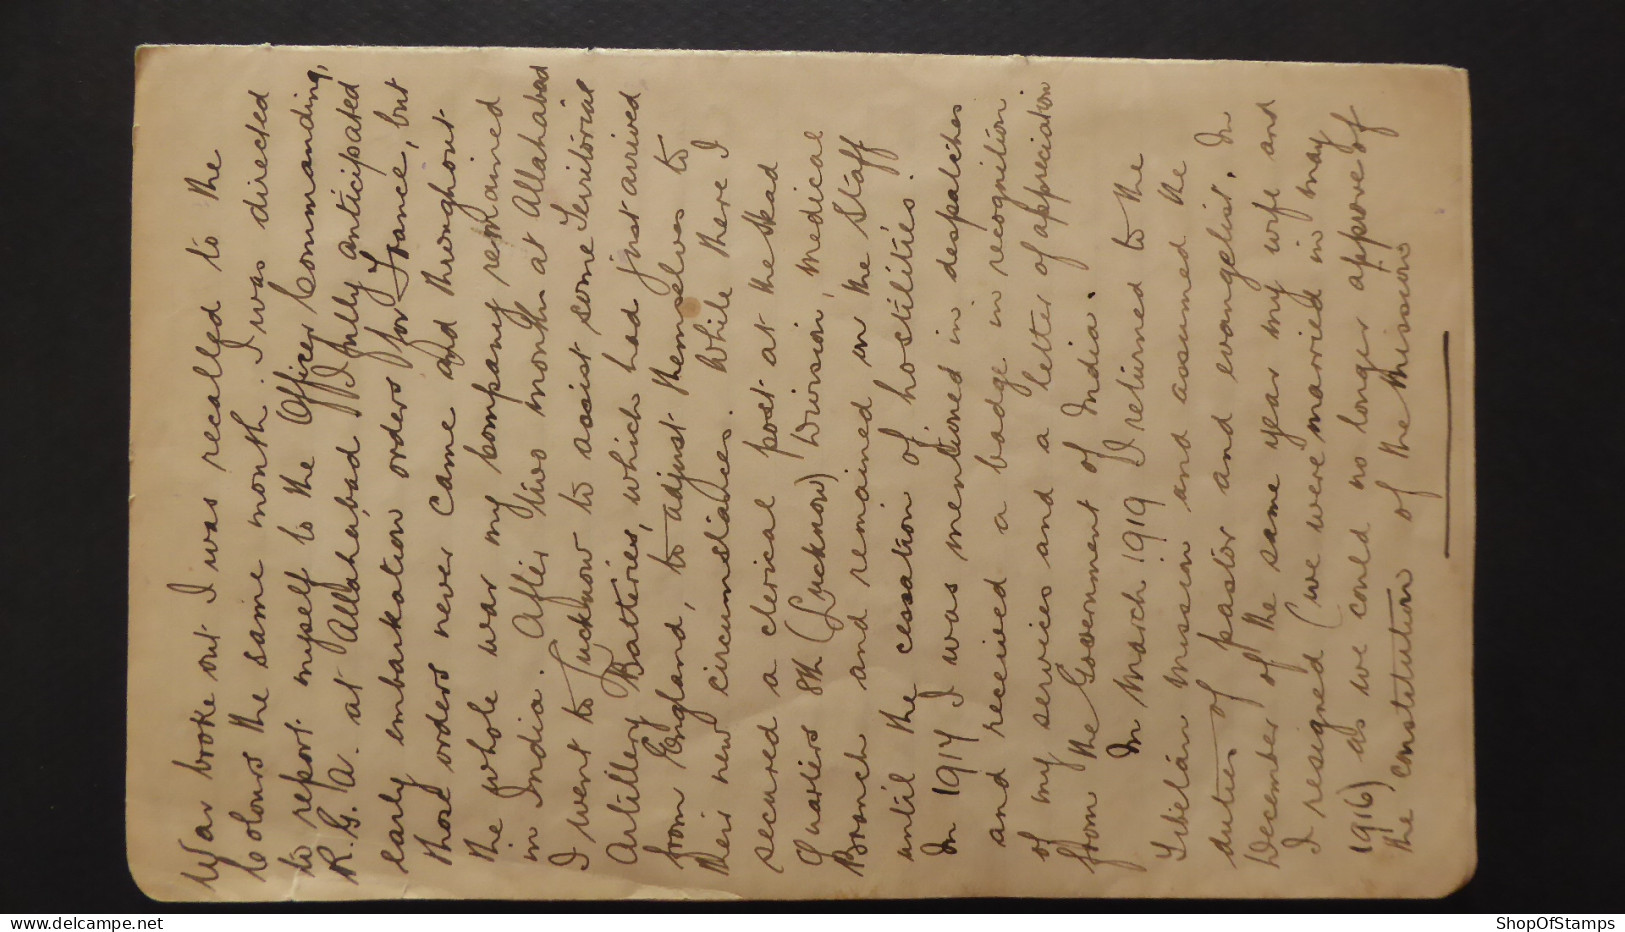 War broke out I was recalled to the
Colours the same month. I was directed
to report myself to the Officer Commanding,
R.G.A. at Allahabad I fully anticipated
early embarkation orders for France, but
those orders never came and throughout
the whole war my company remained
in India. After two months at Allahabad
I went to Lucknow to assist some Territorial
Artillery Batteries, which had just arrived
from England, to adjust themselves to
their new circumstances. While there I
secured a clerical post at the Head
Quarters 8th (Lucknow) Division, Medical
Branch and remained on the Staff
until the cessation of hostilities.
In 1917 I was mentioned in despatches
and received a badge in recognition
of my services and a letter of appreciation
from the Government of India.
In March 1919 I returned to the
Tibetan Mission and assumed the
duties of pastor and evangelist. In
December of the same year my wife and
I resigned (we were married in May
1916) as we could no longer approve of
the constitution of the Mission
ShopOfStamps